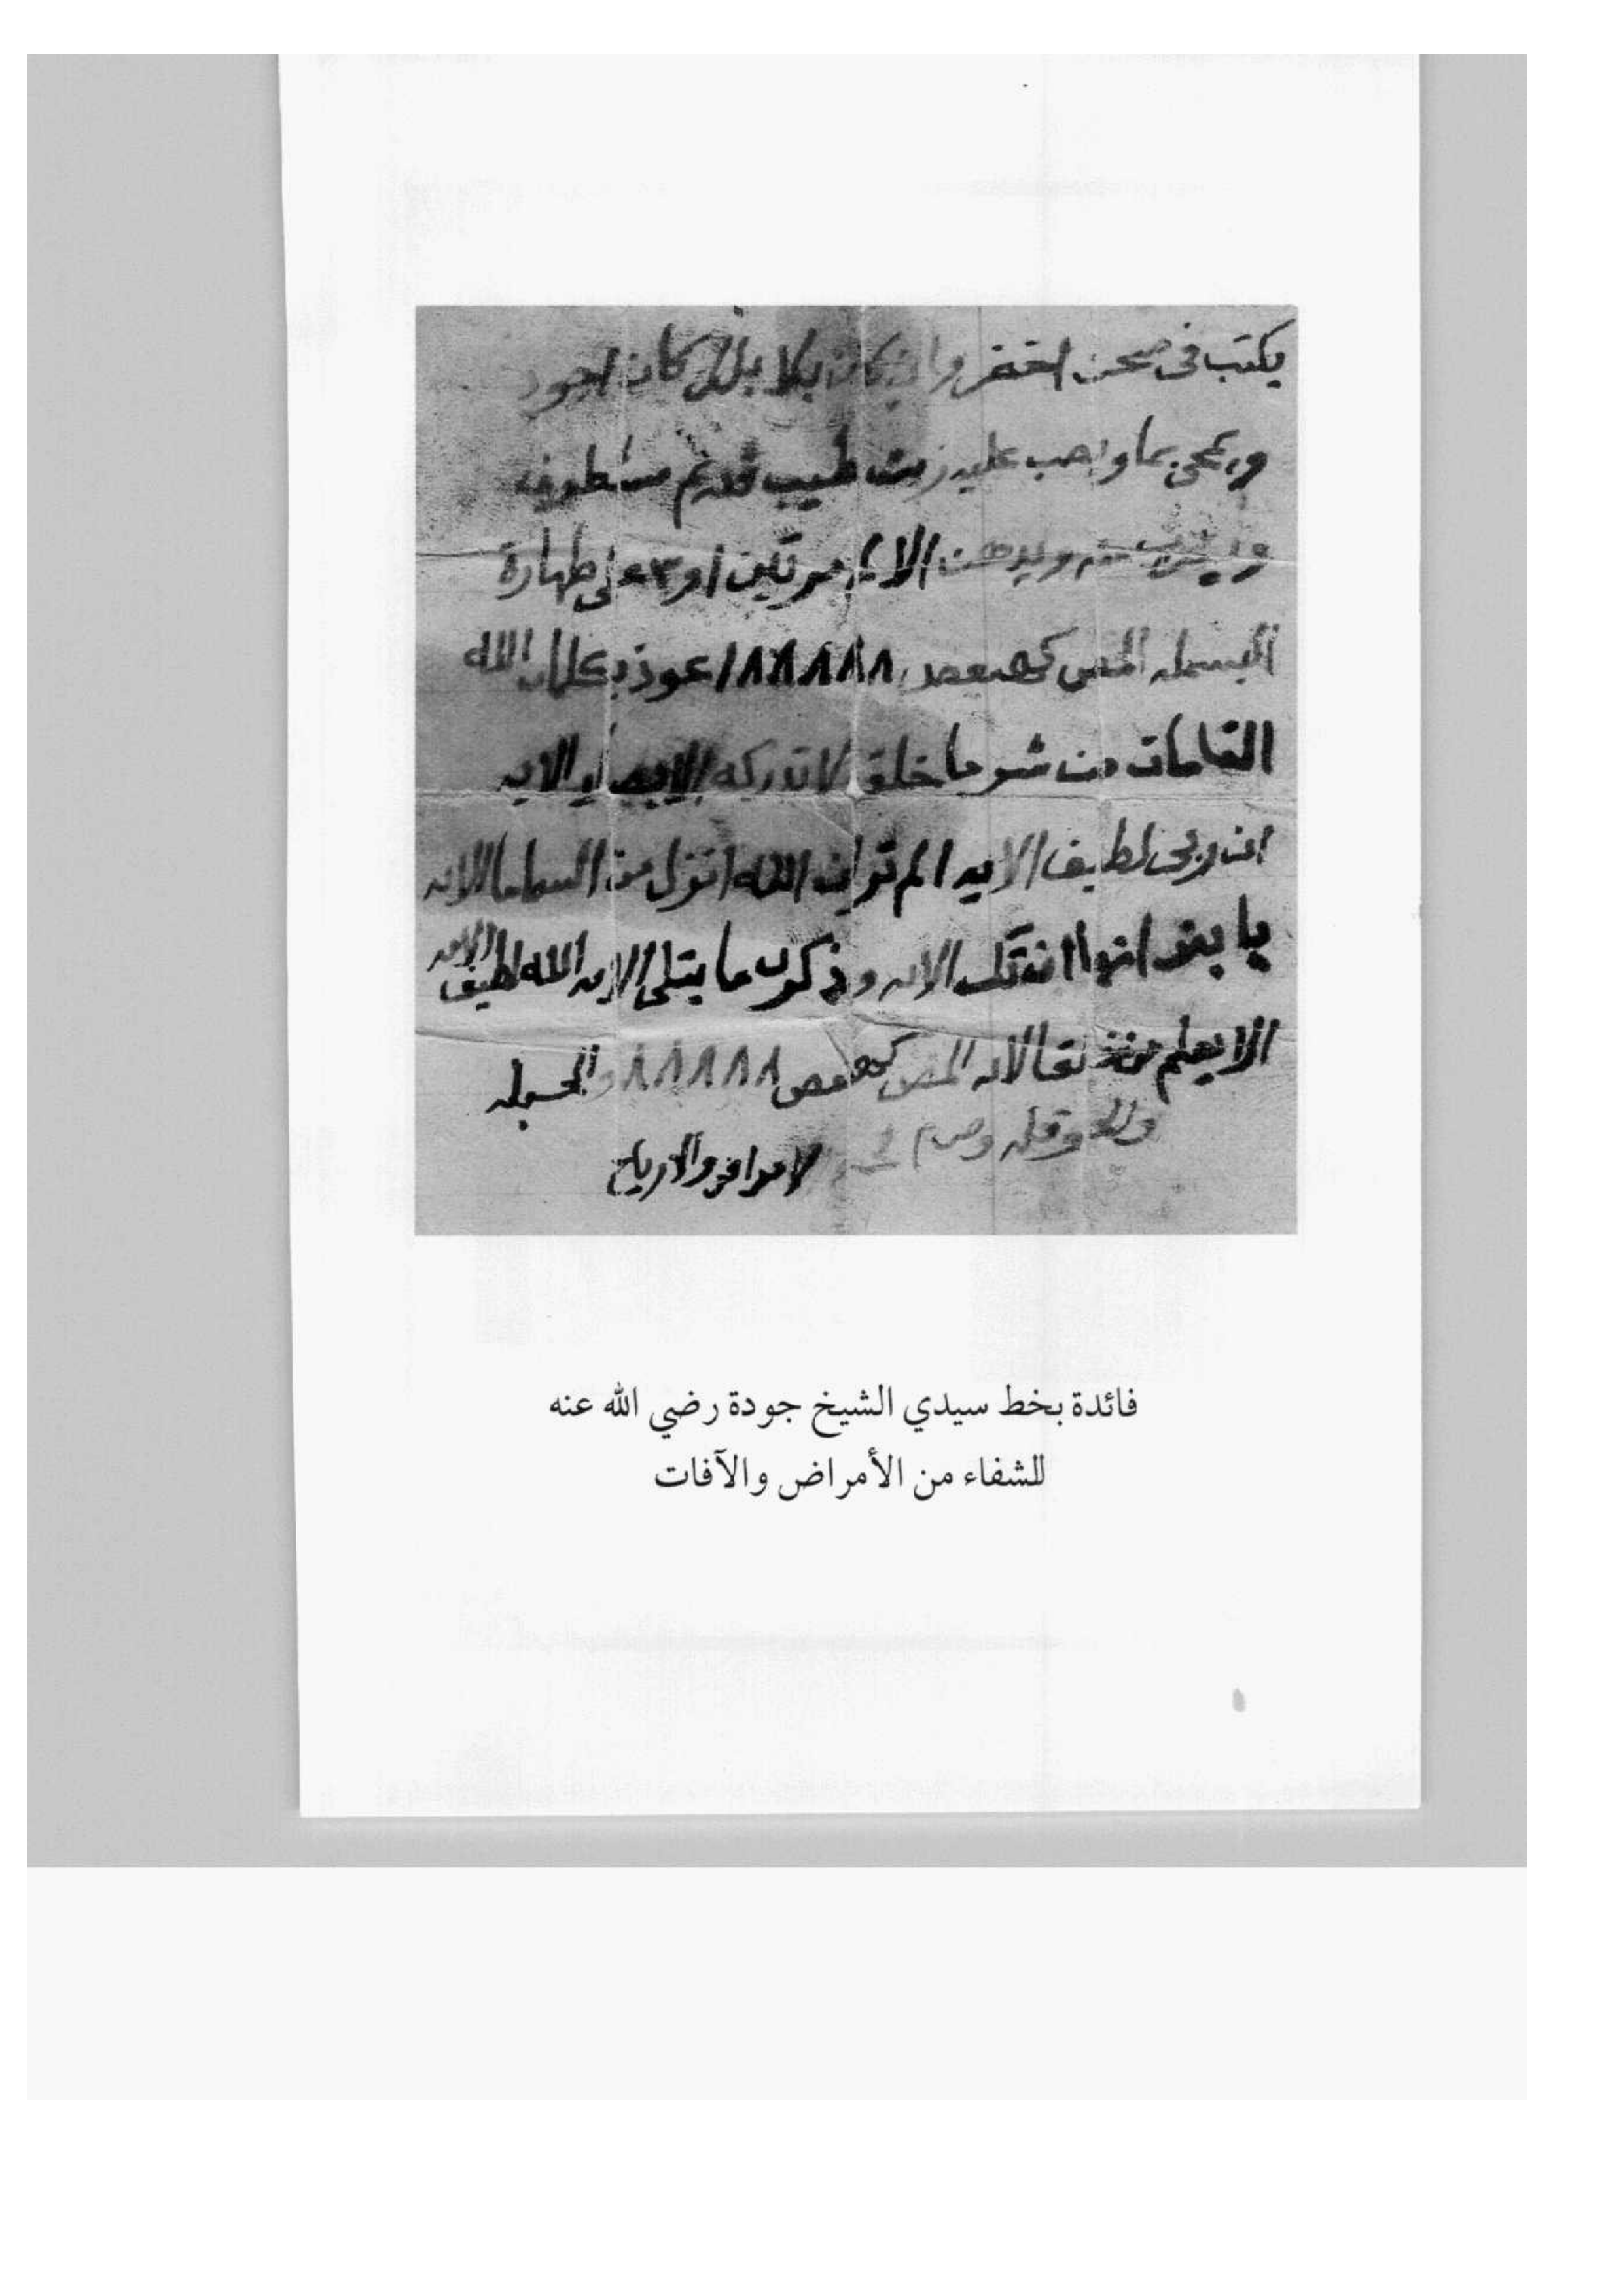 يكتب فى صحن اخضر وان كان بلا بلل كان اجود
ويمحى بماو اصب عليه زيت طيب قديم
ويشرب منه ويدهن الالم مرتين او ٣ على طهارة
البسمله المص كهيعص ٨٨٨٨٨ اعوذ بكلمات الله
التامات من شر ما خلق لا تدركه الابصار الايه
ان ربى لطيف الايه الم تر ان الله انزل من السما الايه
يا بنى انها ان تك الايه وذكرن ما يتلى الايه الله لطيف الايه
الا يعلم من خلق الايه المص كهيعص ٨٨٨٨٨
والحوقله
والارياح
فائدة بخط سيدي الشيخ جودة رضي الله عنه
للشفاء من الأمراض والآفات